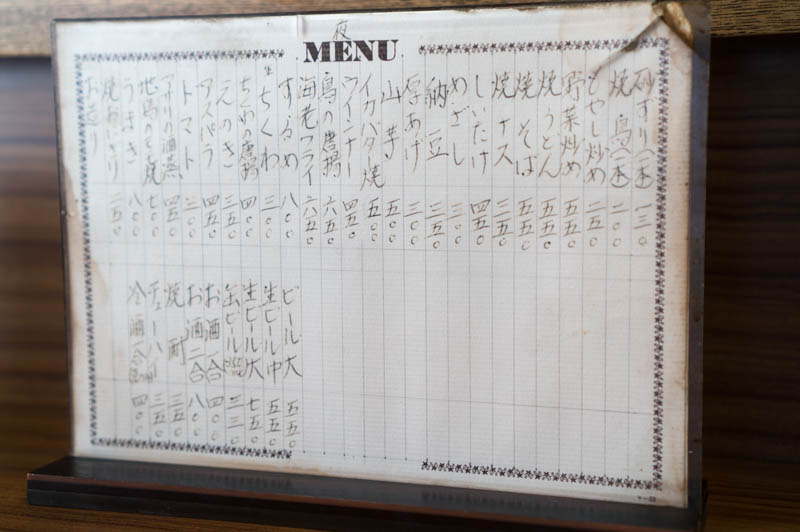 夜
MENU
砂ずり(一本) 一三〇
焼鳥(一本) 二〇〇
もやし炒め 二五〇
野菜炒め 五五〇
焼うどん 五五〇
焼そば 五五〇
焼ナス 三五〇
しいたけ 四五〇
めざし 三〇〇
納豆 二五〇
厚あげ 三〇〇
山芋 五〇〇
イカバタ焼 五〇〇
ウインナー 四五〇
鳥の唐揚 六五〇
海老フライ 六五〇
するめ 八〇〇
生ちくわ 三〇〇
ちくわの唐揚 四〇〇
えのき 三五〇
アスパラ 四五〇
トマト 三〇〇
アサリの酒蒸 四五〇
地鳥のもも焼 七〇〇
うまき 八〇〇
焼おにぎり 二五〇
お造り
ビール大 五五〇
生ビール中 五五〇
生ビール大 七五〇
缶ビール 二三〇
お酒一合 四〇〇
お酒二合 八〇〇
焼酎 三五〇
チューハイ 三五〇
冷酒一合 四〇〇